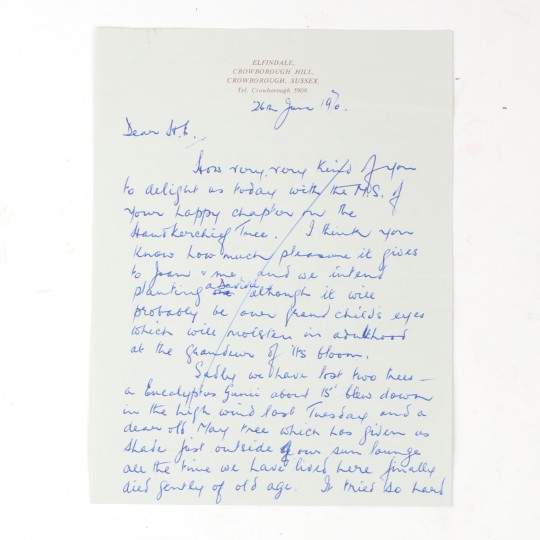 ELFINDALE,
CROWBOROUGH HILL,
CROWBOROUGH, SUSSEX.
Tel. Crowborough 5909.
26th June
Dear H.E.,
How very, very kind of you
to delight us today with the M.S. of
your happy chapter on the
Handkerchief Tree. I think you
know how much pleasure it gives
to Joan & me, and we intend
planting a Davidia although it will
probably be our grandchilds eyes
which will moisten in adulthood
at the grandeur of its bloom.
Sadly we have lost two trees —
a Eucalyptus Gunii about 15' blew down
in the high wind last Tuesday and a
dear old May tree which has given us
shade just outside of our sun lounge
all the time we have lived here finally
died gently of old age. It tried so hard